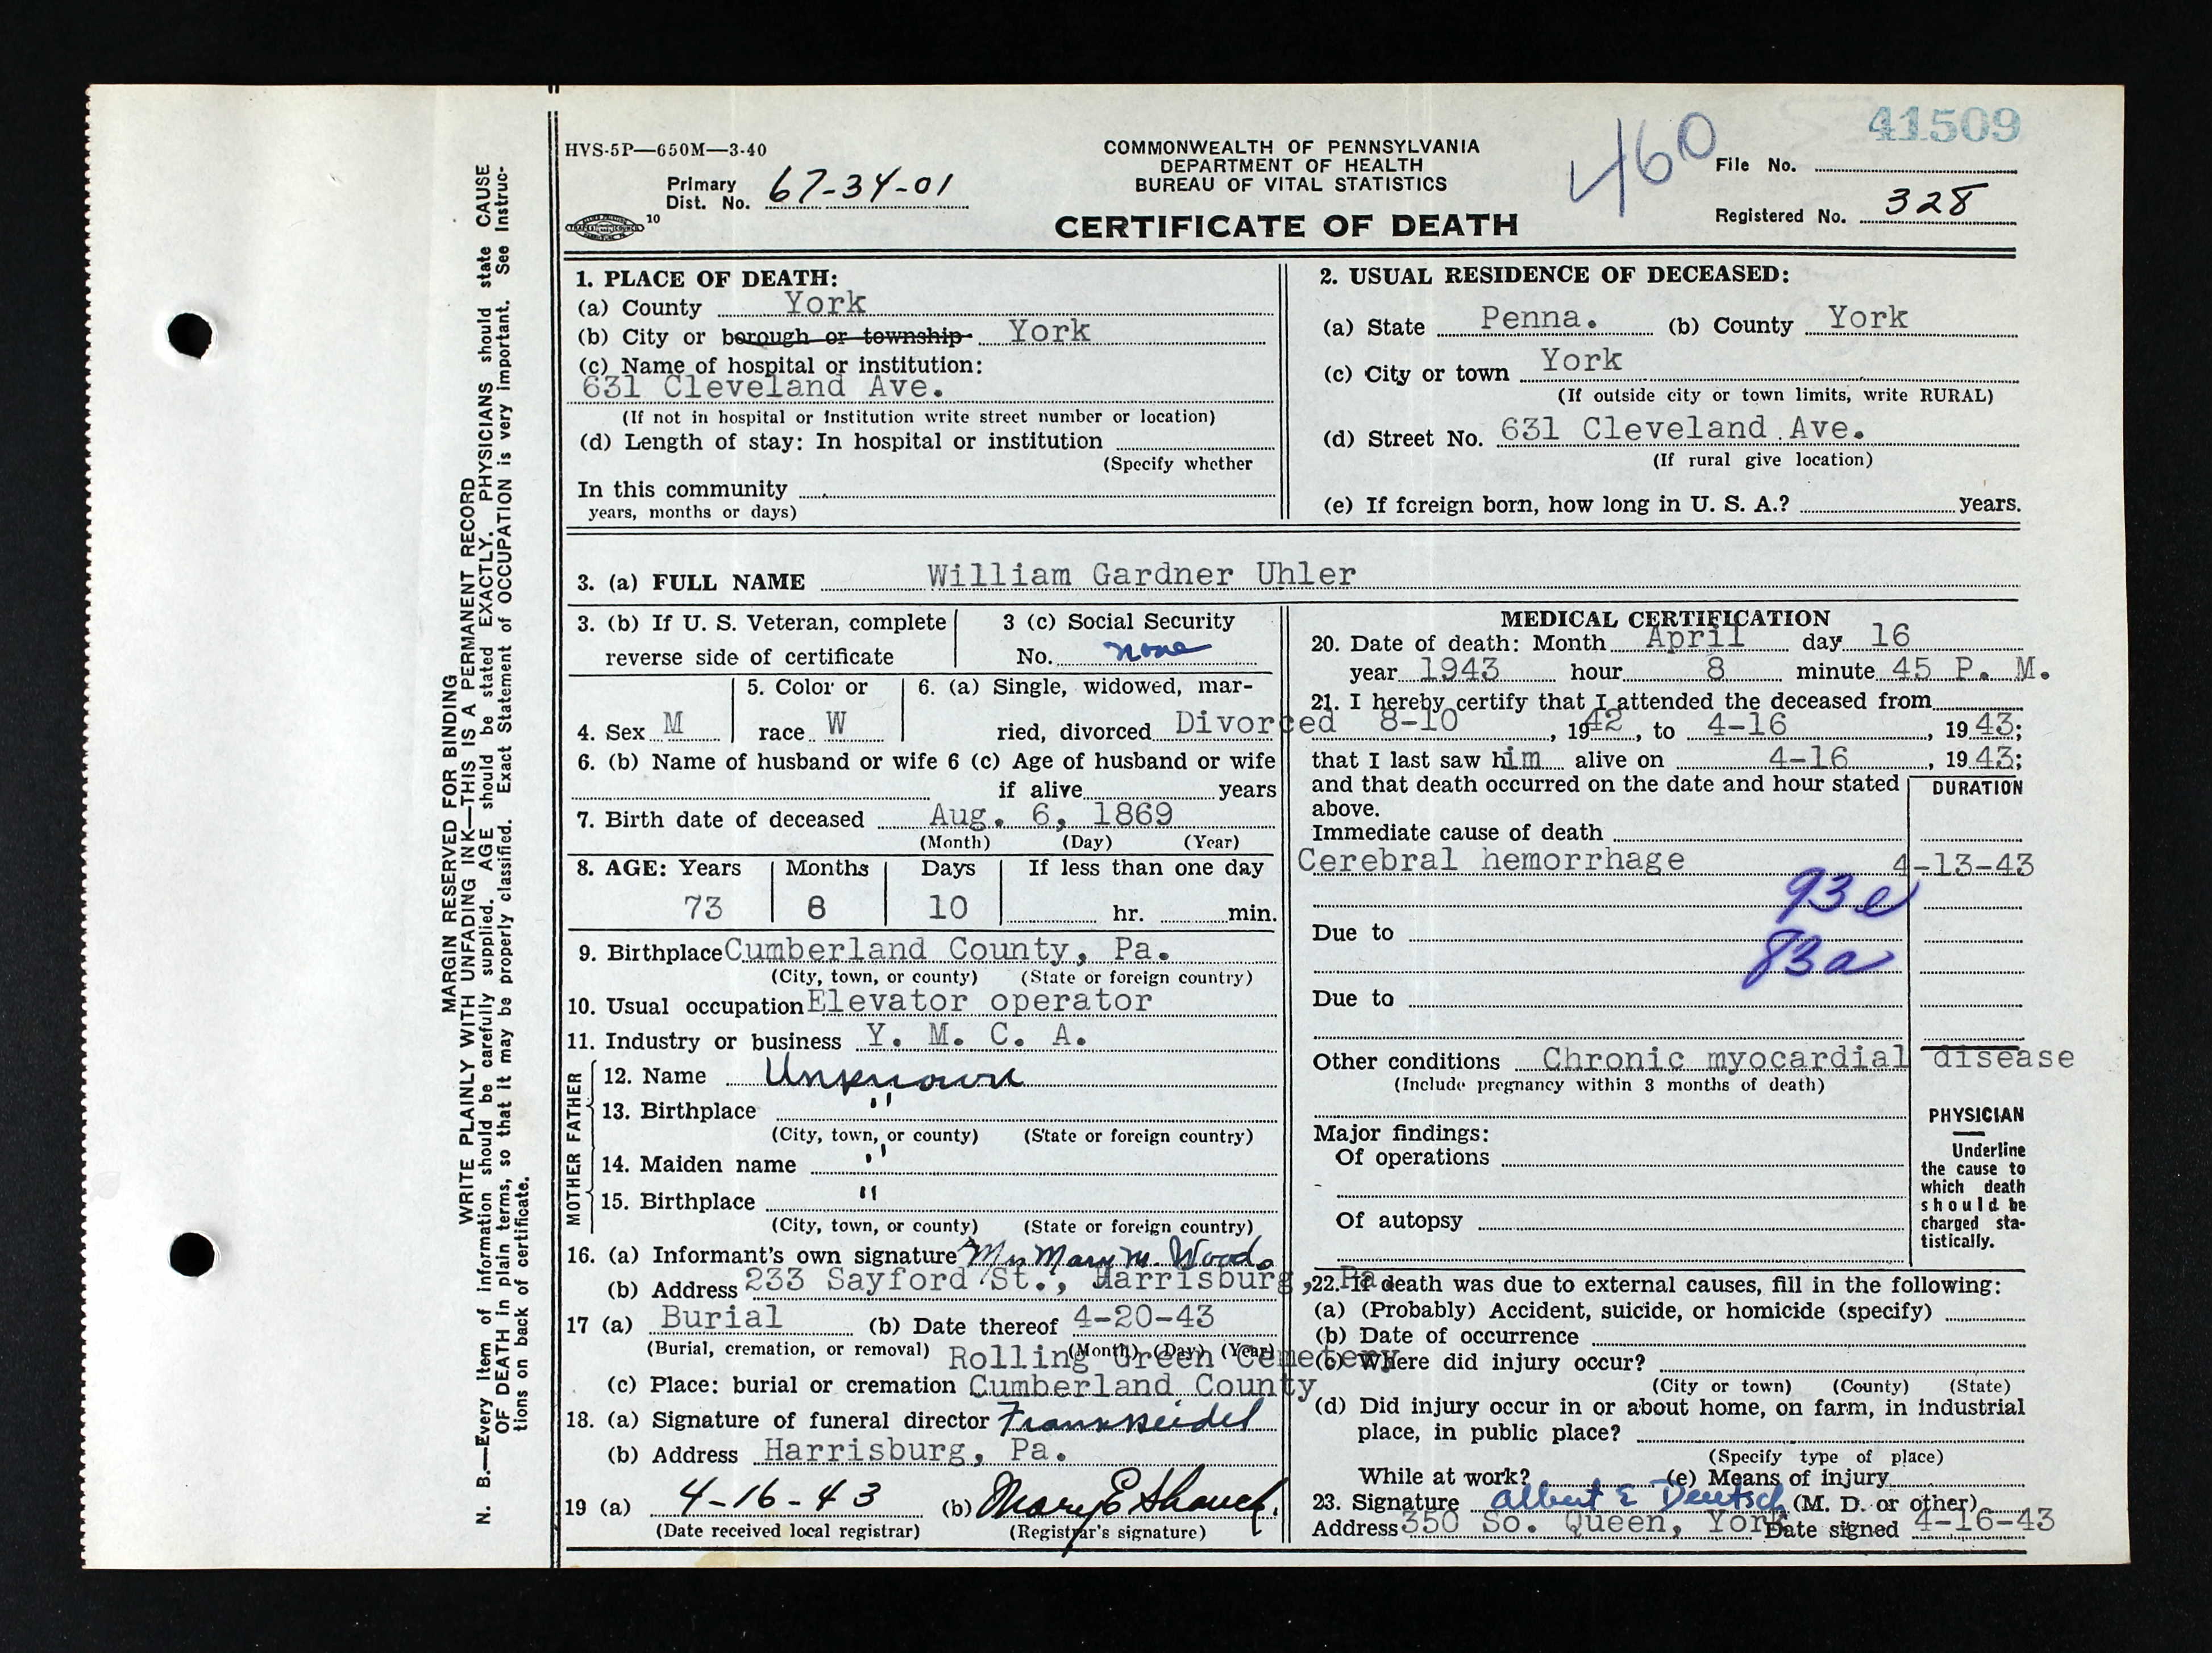 41509
HVS-5P—650M—3-40
COMMONWEALTH OF PENNSYLVANIA
DEPARTMENT OF HEALTH
BUREAU OF VITAL STATISTICS
460
File No.
Primary
Dist. No. 67-34-01
Registered No. 328
10
CERTIFICATE OF DEATH
MARGIN RESERVED FOR BINDING
WRITE PLAINLY WITH UNFADING INK—THIS IS A PERMANENT RECORD
N. B.—Every item of information should be carefully supplied. AGE should be stated EXACTLY. PHYSICIANS should state CAUSE
OF DEATH in plain terms, so that it may be properly classified. Exact Statement of OCCUPATION is very important. See Instruc-
tions on back of certificate.
1. PLACE OF DEATH:
(a) County York
(b) City or borough or township York
(c) Name of hospital or institution:
631 Cleveland Ave.
(If not in hospital or institution write street number or location)
(d) Length of stay: In hospital or institution
(Specify whether
In this community
years, months or days)
2. USUAL RESIDENCE OF DECEASED:
(a) State Penna. (b) County York
(c) City or town York
(If outside city or town limits, write RURAL)
(d) Street No. 631 Cleveland Ave.
(If rural give location)
(e) If foreign born, how long in U. S. A.? years.
3. (a) FULL NAME William Gardner Uhler
3. (b) If U. S. Veteran, complete
reverse side of certificate
3 (c) Social Security
No. none
4. Sex M
5. Color or
race W
6. (a) Single, widowed, mar-
ried, divorced Divorced
6. (b) Name of husband or wife 6 (c) Age of husband or wife
if alive years
7. Birth date of deceased Aug. 6, 1869
(Month) (Day) (Year)
8. AGE: Years Months Days If less than one day
73 8 10 hr. min.
9. Birthplace Cumberland County, Pa.
(City, town, or county) (State or foreign country)
10. Usual occupation Elevator operator
11. Industry or business Y. M. C. A.
FATHER
12. Name Unknown
13. Birthplace "
(City, town, or county) (State or foreign country)
MOTHER
14. Maiden name "
15. Birthplace "
(City, town, or county) (State or foreign country)
16. (a) Informant's own signature Mrs Mary M. Wood
(b) Address 233 Sayford St., Harrisburg, Pa.
17 (a) Burial (b) Date thereof 4-20-43
(Burial, cremation, or removal) (Month) (Day) (Year)
Rolling Green Cemetery
(c) Place: burial or cremation Cumberland County
18. (a) Signature of funeral director Frank Seidel
(b) Address Harrisburg, Pa.
19 (a) 4-16-43 (b) Mary E Shauck.
(Date received local registrar) (Registrar's signature)
MEDICAL CERTIFICATION
20. Date of death: Month April day 16
year 1943 hour 8 minute 45 P. M.
21. I hereby certify that I attended the deceased from
8-10, 1942, to 4-16, 1943;
that I last saw him alive on 4-16, 1943;
and that death occurred on the date and hour stated
above.
DURATION
Immediate cause of death
Cerebral hemorrhage 4-13-43
93e
Due to
83a
Due to
Other conditions Chronic myocardial disease
(Include pregnancy within 3 months of death)
Major findings:
Of operations
Of autopsy
PHYSICIAN
Underline
the cause to
which death
should be
charged sta-
tistically.
22. If death was due to external causes, fill in the following:
(a) (Probably) Accident, suicide, or homicide (specify)
(b) Date of occurrence
(c) Where did injury occur?
(City or town) (County) (State)
(d) Did injury occur in or about home, on farm, in industrial
place, in public place?
(Specify type of place)
While at work? (e) Means of injury
23. Signature Albert E Deutsch (M. D. or other)
Address 350 So. Queen, York Date signed 4-16-43